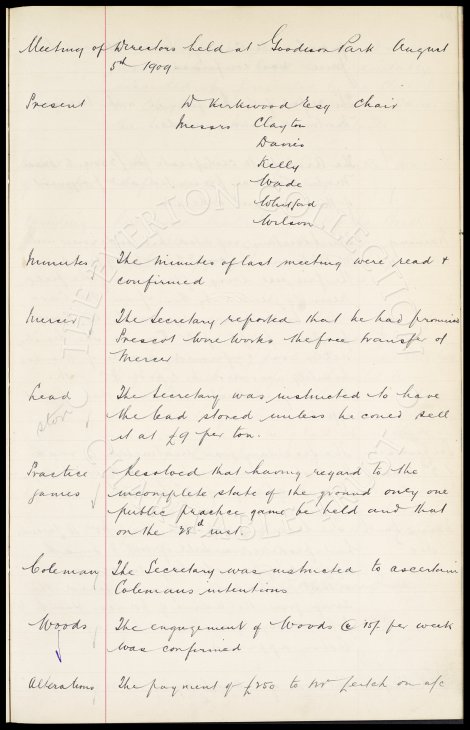 Meeting of Directors held at Goodison Park August
5th 1909
Present W Kirkwood Esq Chair
Messrs Clayton
Davies
Kelly
Wade
Whitford
Wilson
Minutes The minutes of last meeting were read &
confirmed
Mercer The Secretary reported that he had promised
Prescot Wire Works the free transfer of
Mercer
Lead The Secretary was instructed to have
stor the lead stored unless he could sell
it at £9 per ton.
Practice Resolved that having regard to the
games incomplete state of the ground only one
public practice game be held and that
on the 28th inst.
Coleman The Secretary was instructed to ascertain
Colemans intentions
Woods The engagement of Woods @ 15/- per week
was confirmed
Alterations The payment of £250 to Mr Leitch on a/c
THE EVERTON COLLECTION
CHARITABLE TRUST